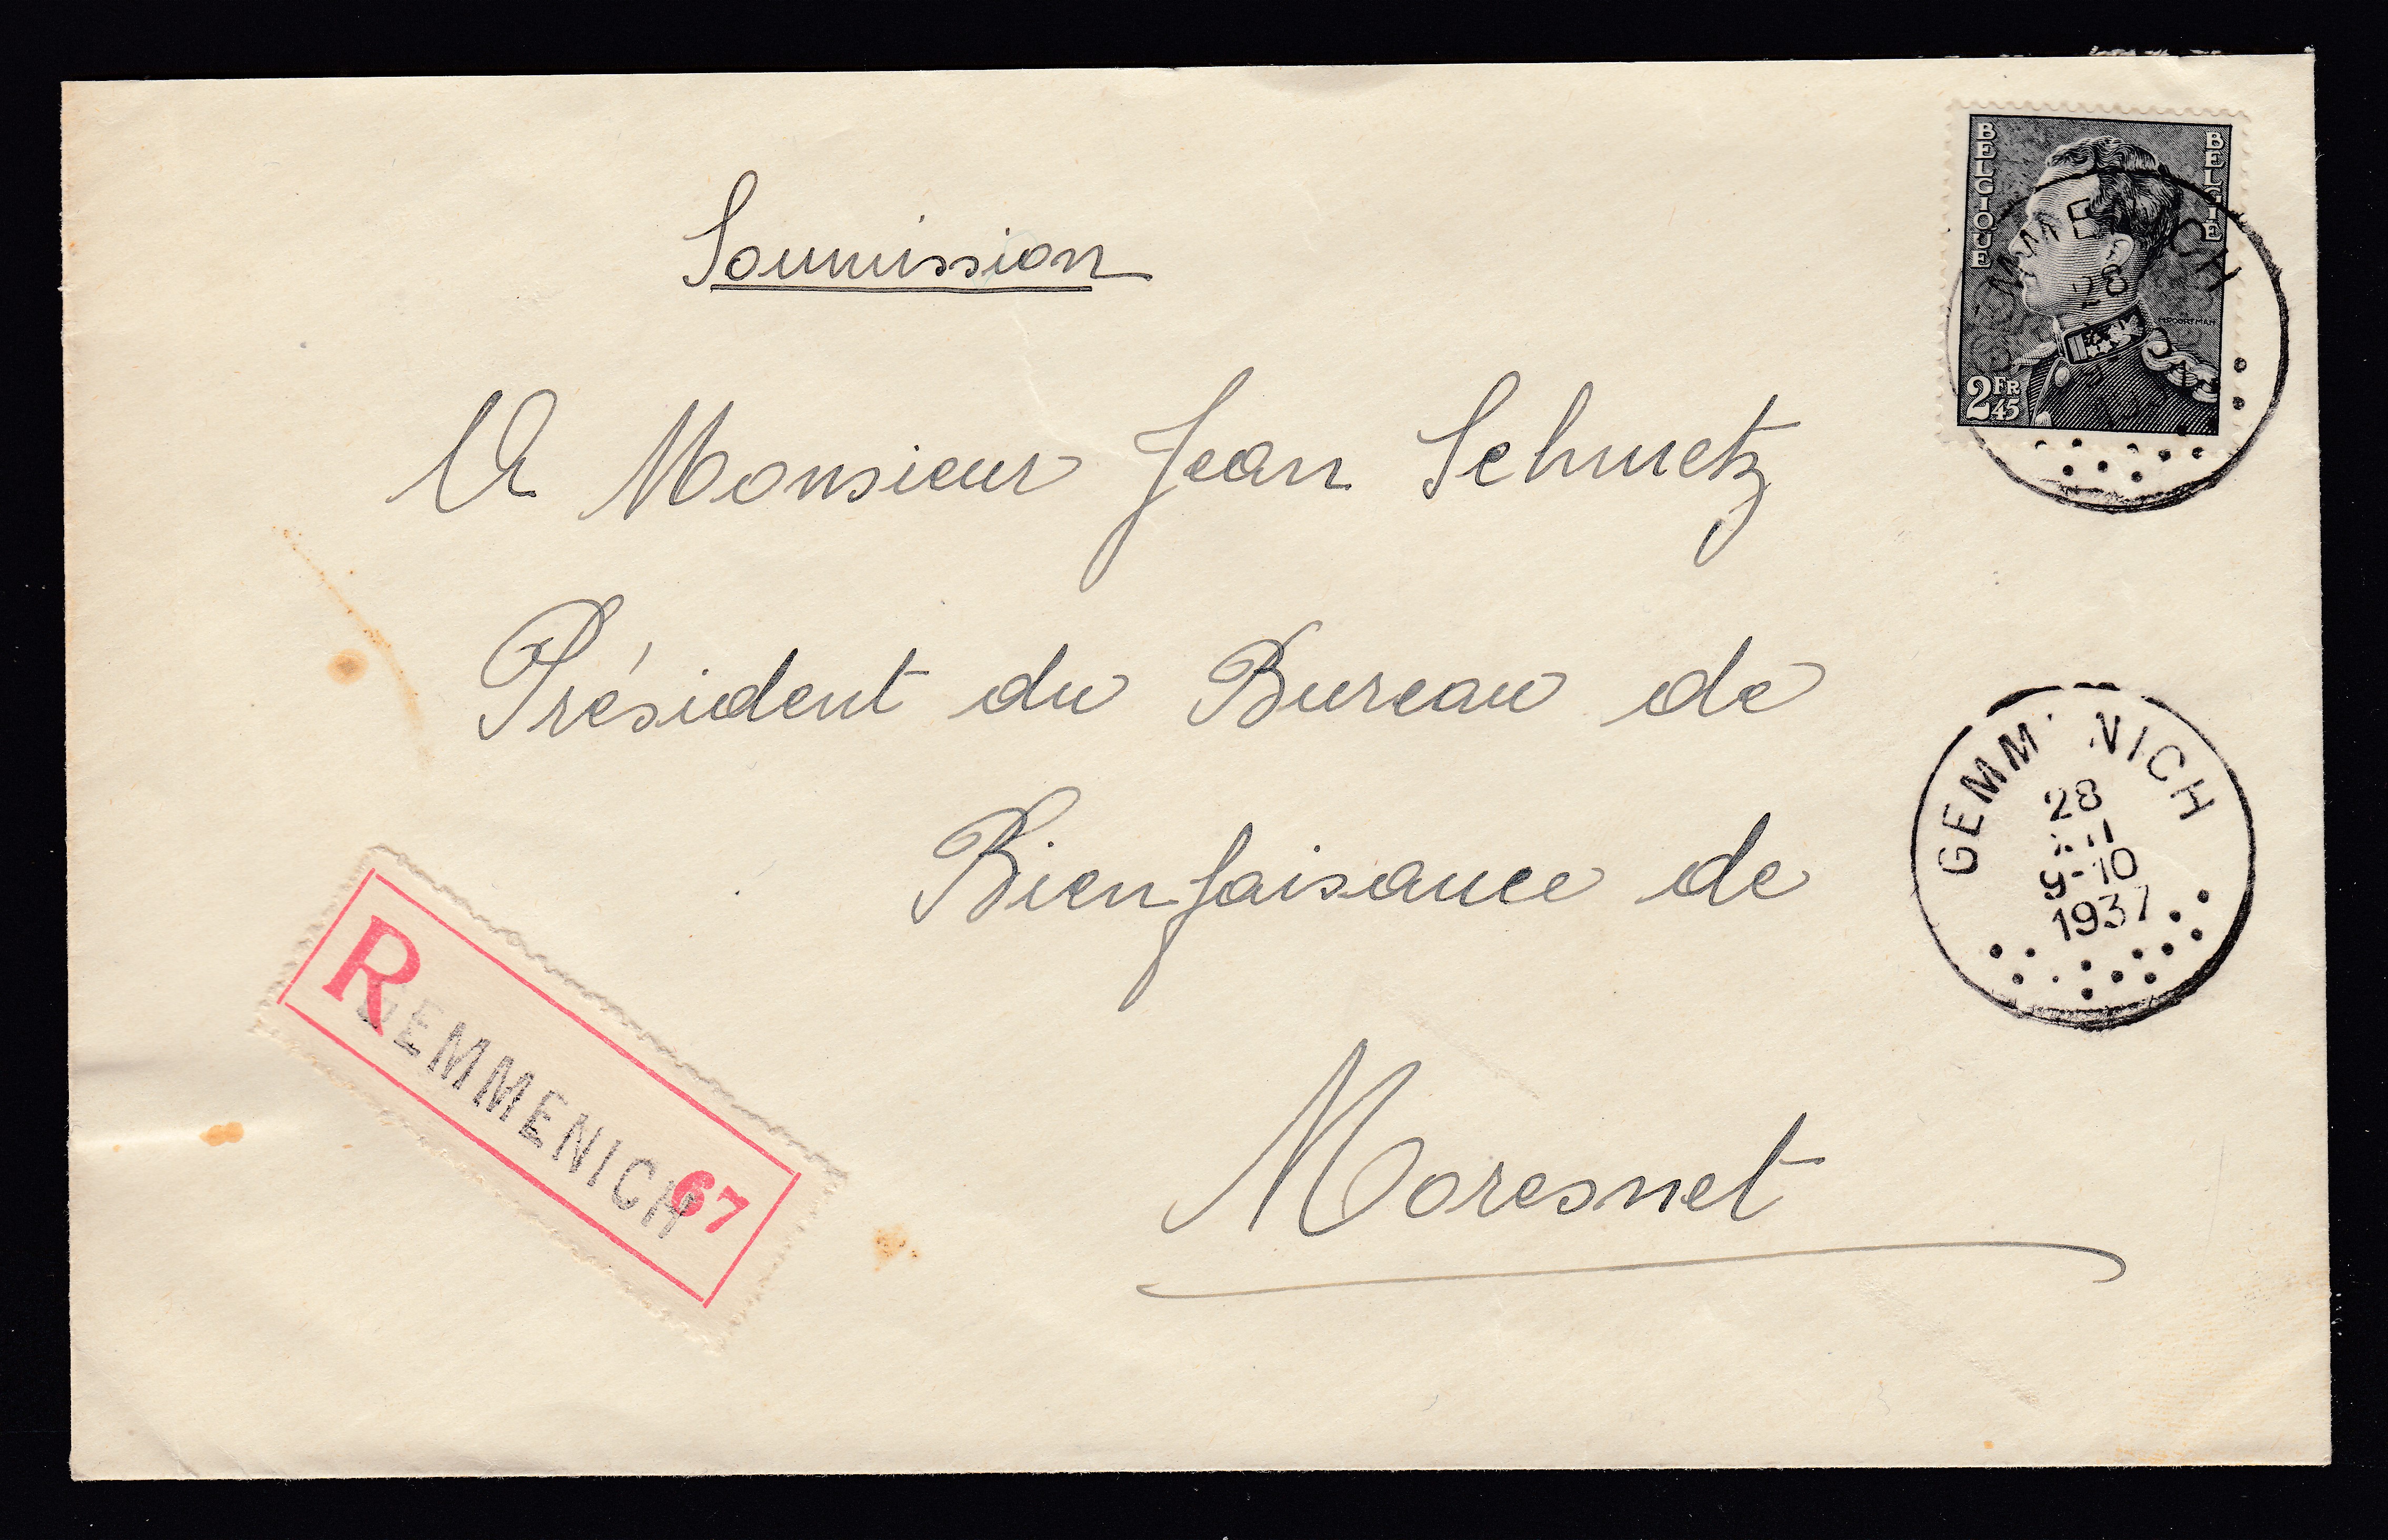 Soumission
A Monsieur Jean Schmetz
Président du Bureau de
Bienfaisance de
Moresnet
BELGIQUE
BELGIË
2 FR 45
28
GEMM NICH
28
9-10
1937
R
GEMMENICH
67